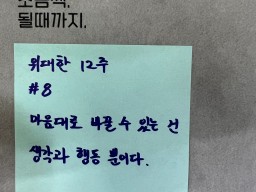 조금씩,
될때까지.
위대한 12주
#8
마음대로 바꿀 수 있는 건
생각과 행동 뿐이다.